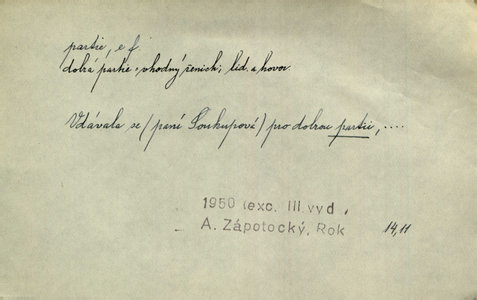 partie, e f.
dobrá partie, vhodný ženich; lid. a hovor.
Vdávala se (paní Soukupová) pro dobrou partii, ....
1950 (exc. III vyd.
A. Zápotocký, Rok 14,11